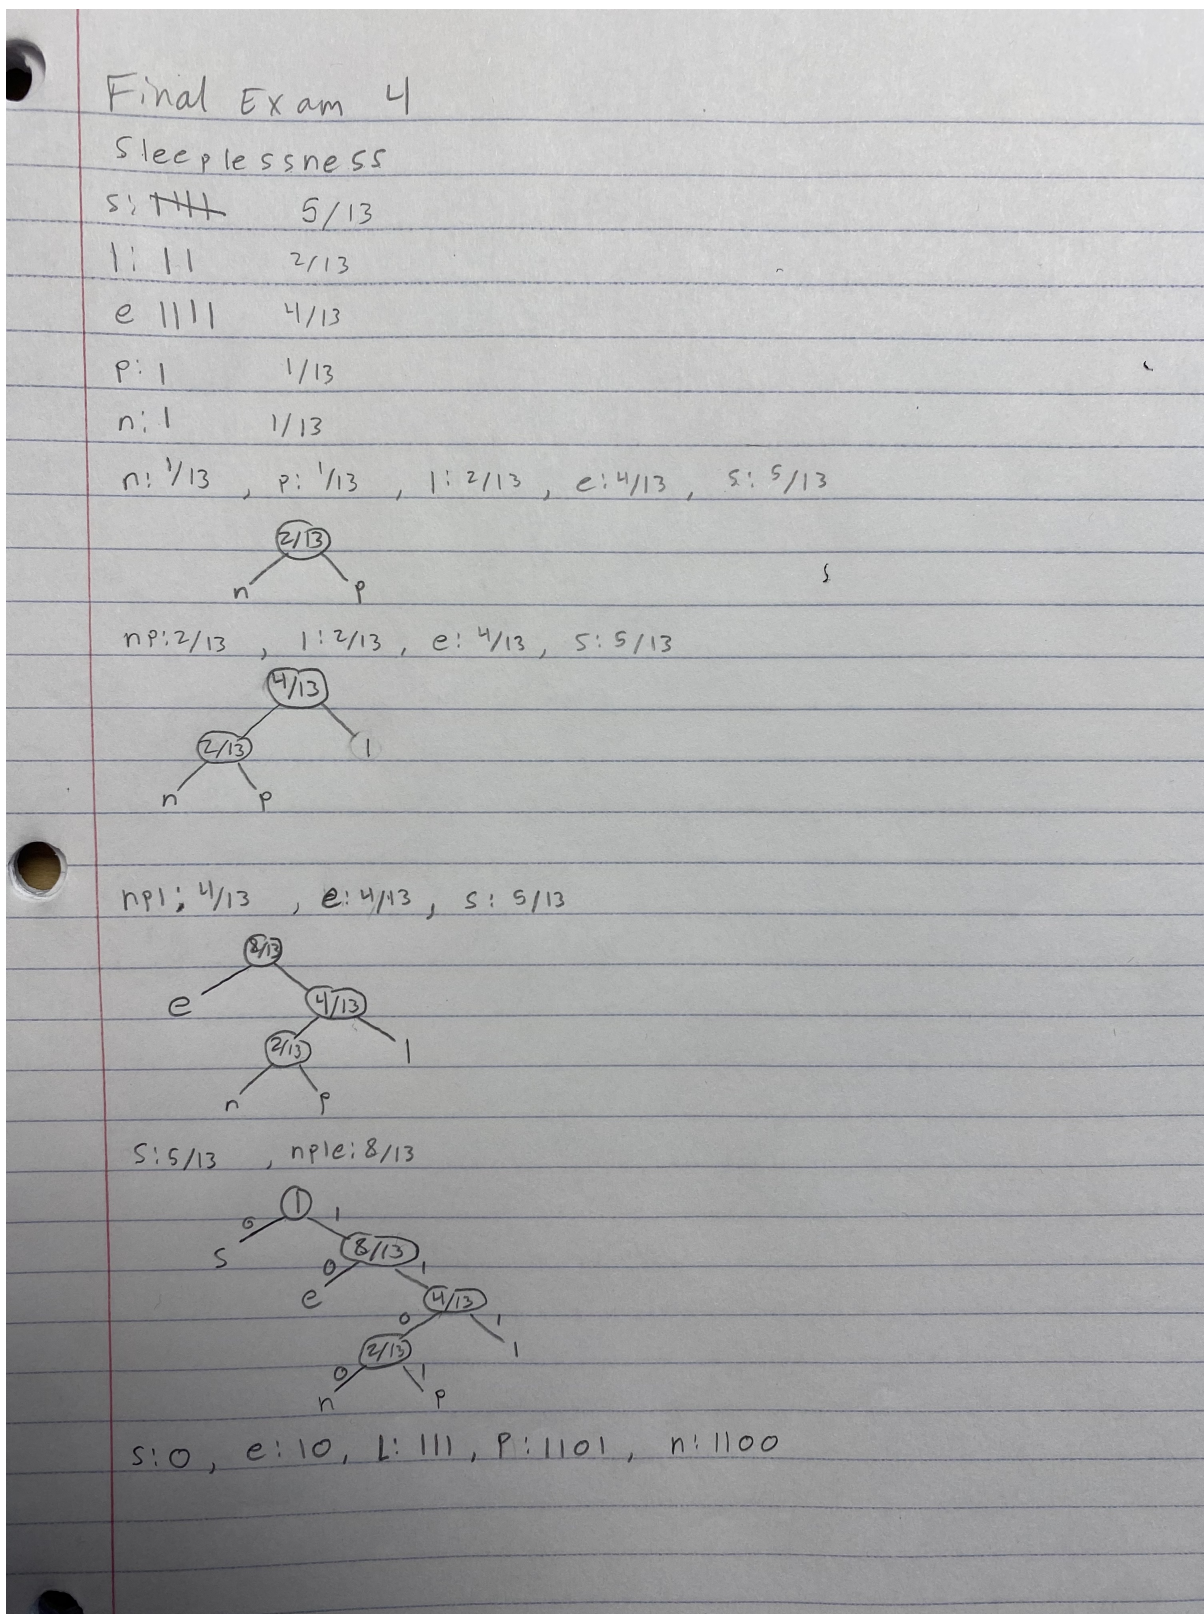 Final Exam 4
Sleeplessness
s: 𝍸 5/13
l: || 2/13
e |||| 4/13
p: | 1/13
n: | 1/13
n: 1/13 , p: 1/13 , l: 2/13 , e: 4/13 , s: 5/13
2/13
n p
np: 2/13 , l: 2/13 , e: 4/13 , s: 5/13
4/13
2/13 l
n p
npl: 4/13 , e: 4/13 , s: 5/13
8/13
e 4/13
2/13 l
n p
s: 5/13 , nple: 8/13
1
0 1
s 8/13
0 1
e 4/13
0 1
2/13 l
0 1
n p
s: 0 , e: 10 , L: 111 , P: 1101 , n: 1100